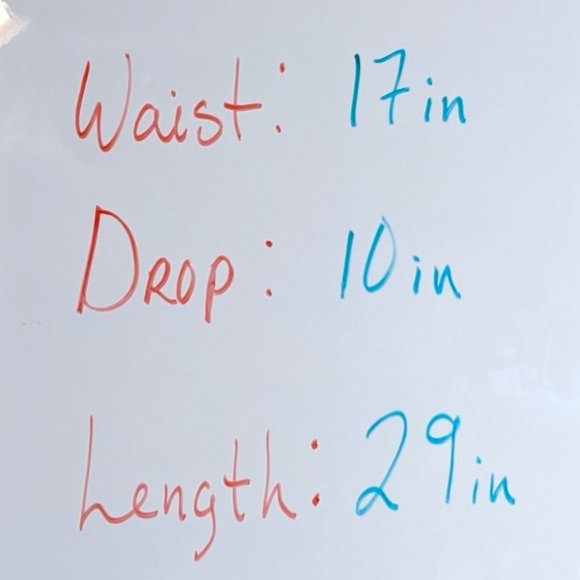 Waist: 17in
DROP: 10in
Length: 29in